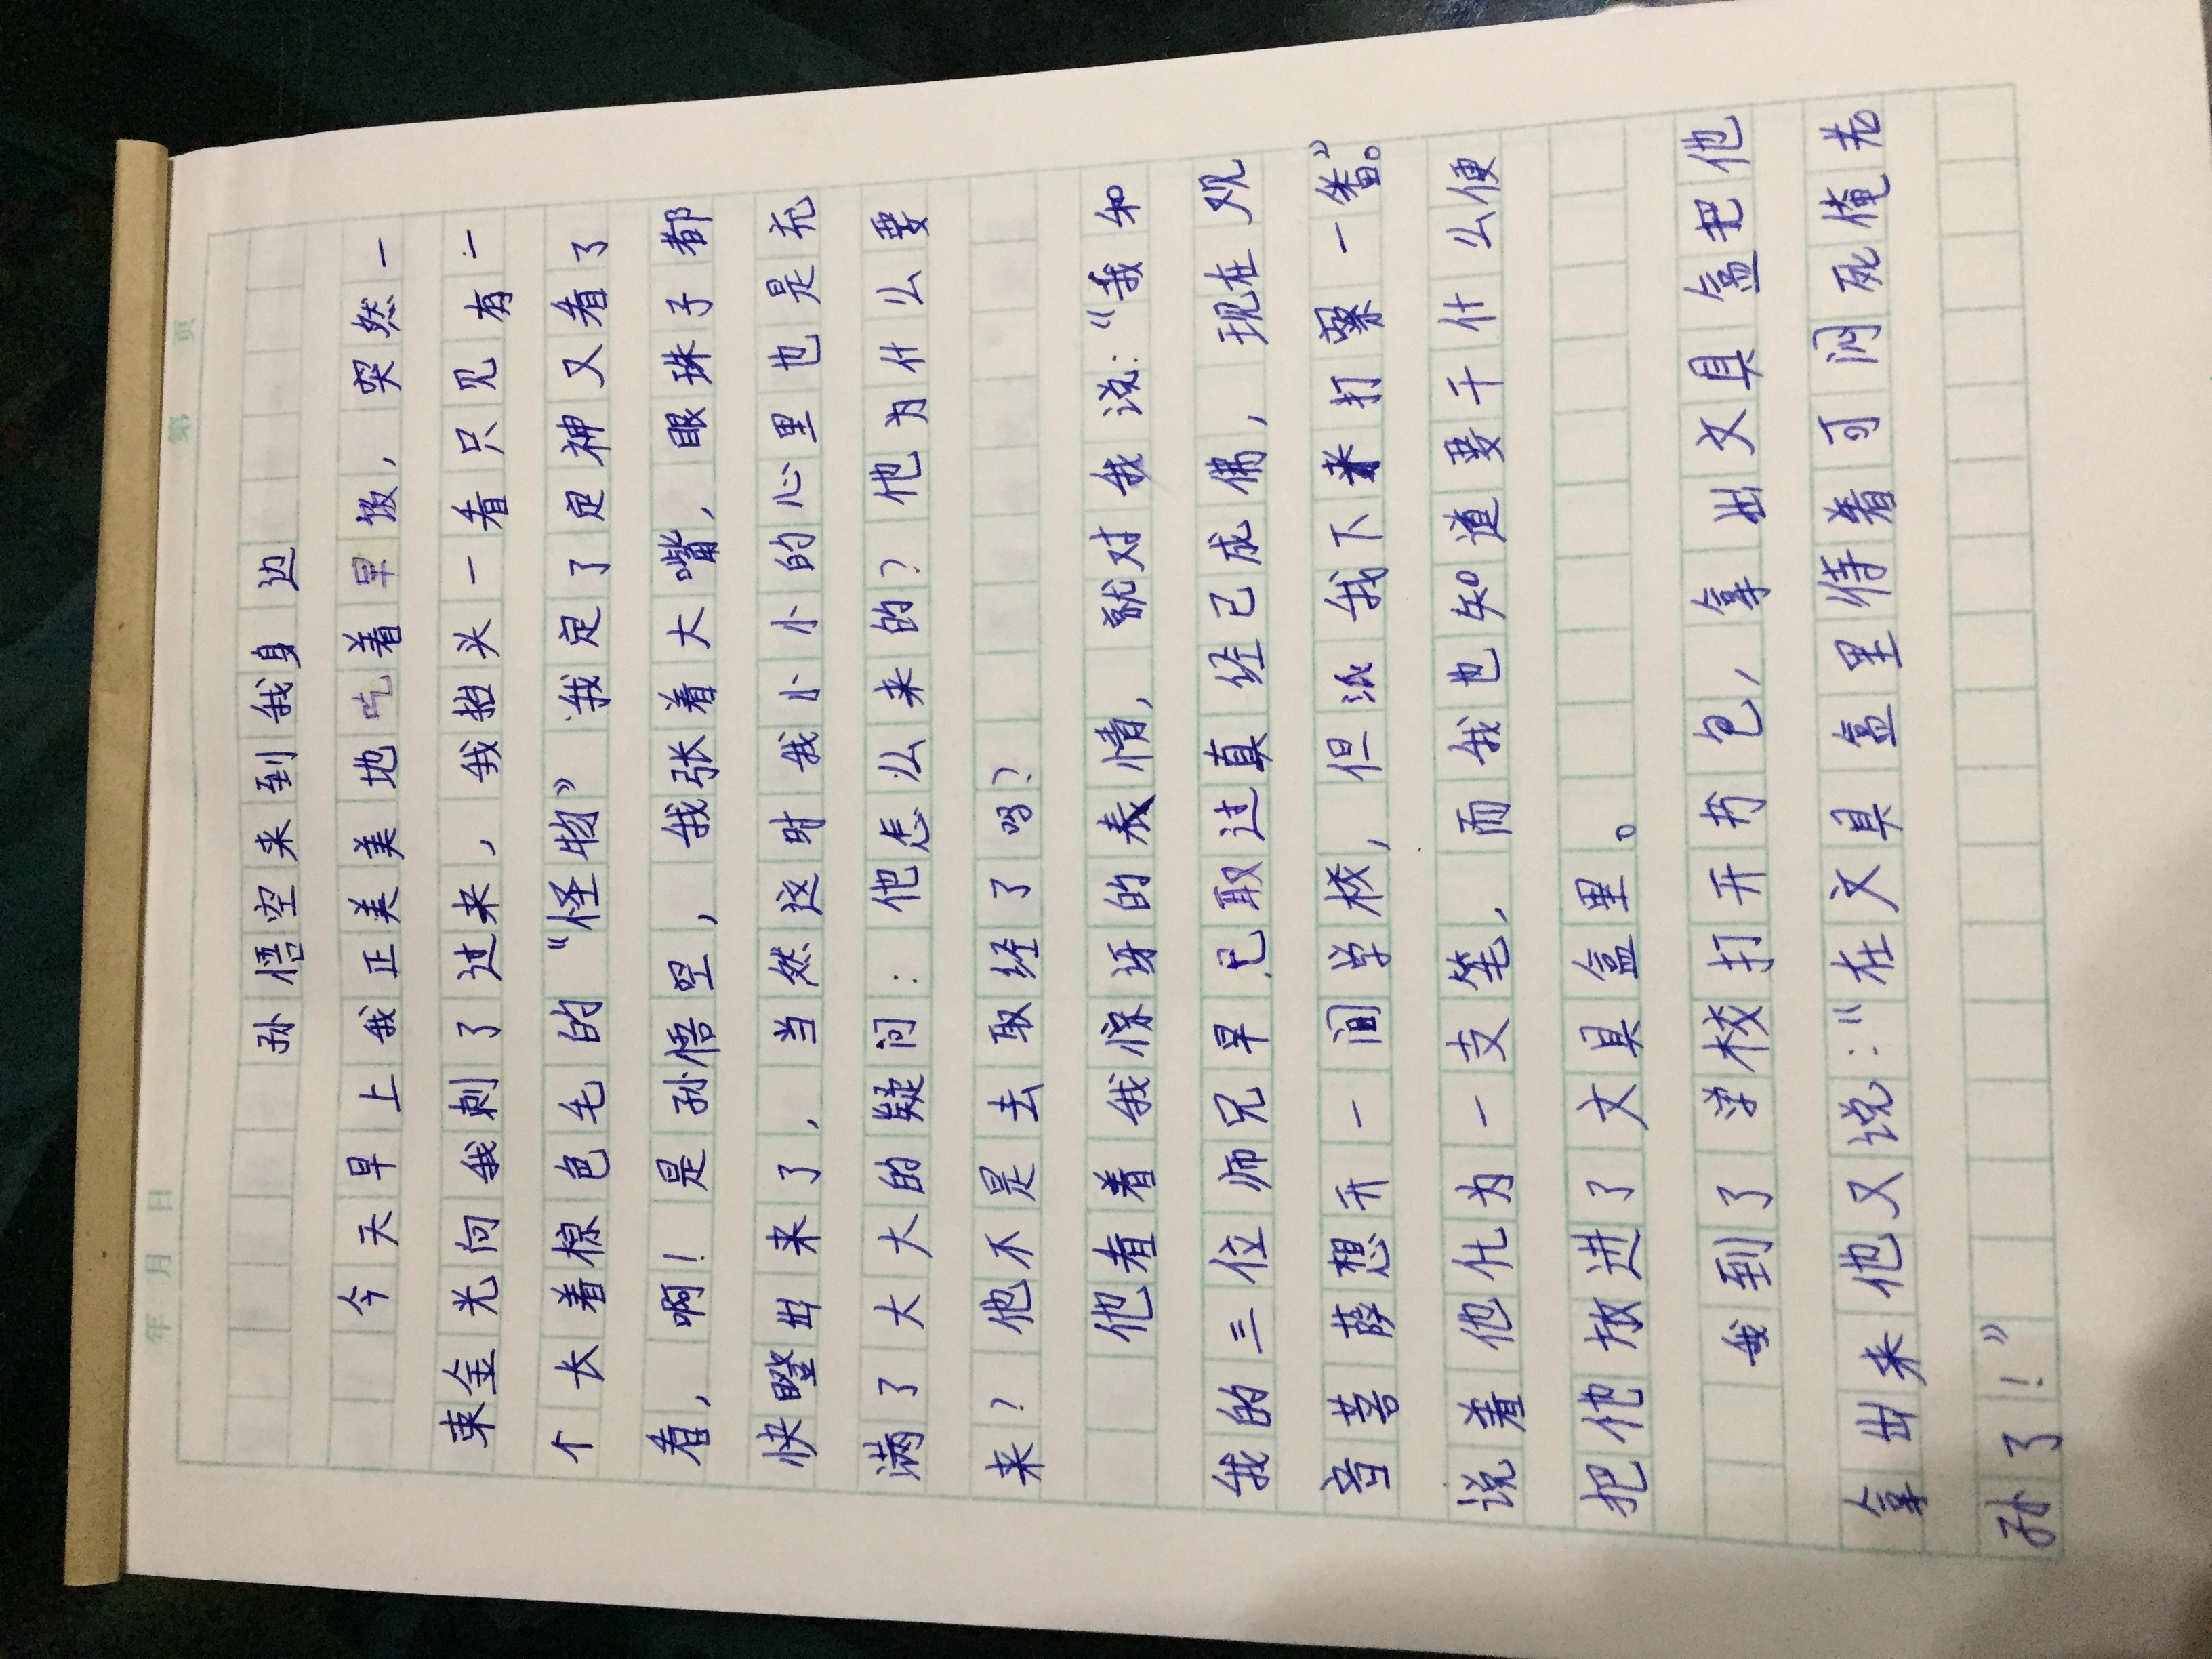 年 月 日 第 页
孙悟空来到我身边
今天早上我正美美地吃着早饭，突然一
束金光向我刺了过来，我抬头一看只见有一
个长着棕色毛的“怪物”我定了定神又看了
看，啊！是孙悟空，我张着大嘴，眼珠子都
快瞪出来了，当然这时我小小的心里也是充
满了大大的疑问：他怎么来的？他为什么要
来？他不是去取经了吗？
他看着我惊讶的表情，就对我说：“我和
我的三位师兄早已取过真经已成佛，现在观
音菩薩想开一间学校，但派我下来打探一番”。
说着他化为一支笔，而我也知道要干什么便
把他放进了文具盒里。
我到了学校打开书包，拿出文具盒把他
拿出来他又说：“在文具盒里待着可闷死俺老
孙了！”